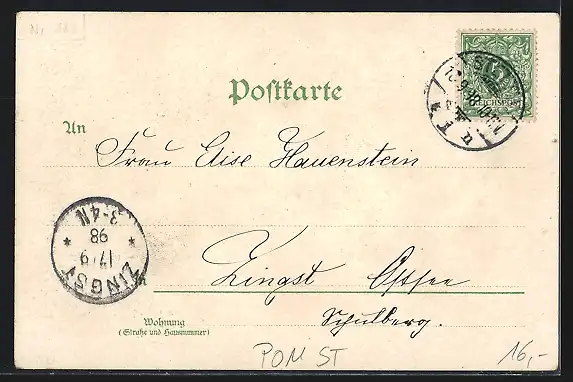 Postkarte
5
REICHSPOST
An
Frau Elise Hauenstein
3-4N
98
17/9
ZINGST
in
Zingst Ostsee
Wohnung
(Straße und Hausnummer)
Schulberg.
POM ST
16,-